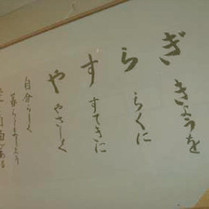 ぎ きょうを
ら らくに
す すてきに
や やさしく
自分らしく